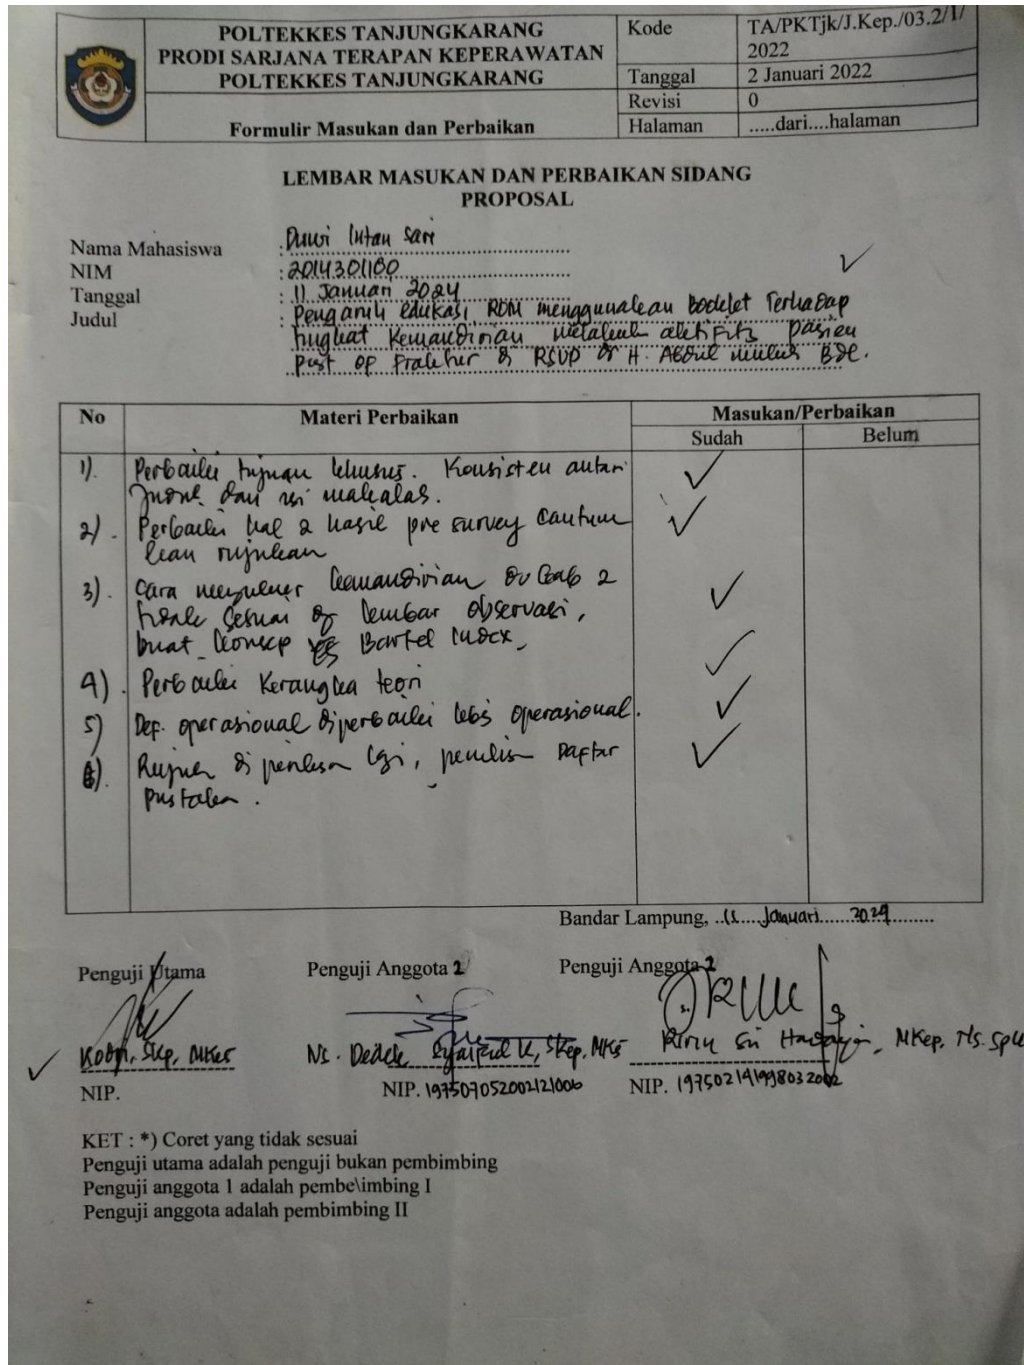 POLTEKKES TANJUNGKARANG
PRODI SARJANA TERAPAN KEPERAWATAN
POLTEKKES TANJUNGKARANG
Formulir Masukan dan Perbaikan
Kode TA/PKTjk/J.Kep./03.2/1/
2022
Tanggal 2 Januari 2022
Revisi 0
Halaman .....dari....halaman
LEMBAR MASUKAN DAN PERBAIKAN SIDANG
PROPOSAL
Nama Mahasiswa : Intan Sari
NIM : 2014301180
Tanggal : 11 Januari 2024
Judul : Pengaruh edukasi ROM menggunakan Booklet Terhadap
tingkat Kemandirian aktifits pasien
post op fraktur di RSUD H. Abdul
No Materi Perbaikan Masukan/Perbaikan
Sudah Belum
1). Perbaiki tujuan khusus. Konsisten antar
dan isi
2). Perbaiki hal 2 hasil pre survey cantum
kan rujukan
3). Cara kemandirian 2
sesuai lembar observasi,
buat konsep
4). Perbaiki Kerangka teori
5) Def. operasional diperbaiki operasional.
6). di , Daftar
pustaka.
Bandar Lampung, 11 Januari 2024
Penguji Utama Penguji Anggota 2 Penguji Anggota
Skp, MKes Ns. , SKep, MKes Sri , MKep, Ns.
NIP. NIP. 197507052002121006 NIP. 197502141998032002
KET : *) Coret yang tidak sesuai
Penguji utama adalah penguji bukan pembimbing
Penguji anggota 1 adalah pembe\imbing I
Penguji anggota adalah pembimbing II